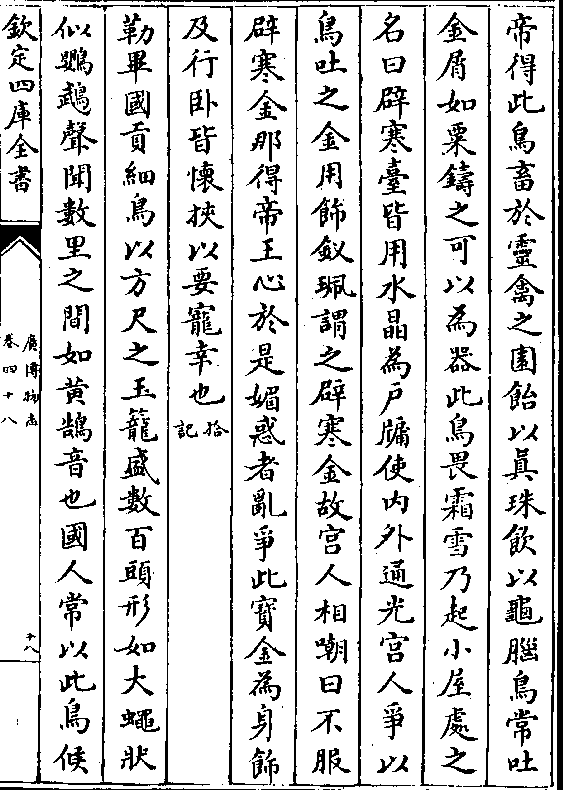 帝得此鳥畜於靈禽之園飴以真珠飲以龜腦鳥常吐
金屑如粟鑄之可以為器此鳥畏霜雪乃起小屋處之
名曰辟寒臺皆用水晶為戶牖使内外通光宫人爭以
鳥吐之金用飾釵珮謂之辟寒金故宫人相嘲曰不服
辟寒金那得帝王心於是媚惑者亂爭此寶金為身飾
及行卧皆懷挾以要寵幸也拾記
勒畢國貢細鳥以方尺之玉籠盛數百頭形如大蠅狀
似鸚鵡聲聞數里之間如黄鵠音也國人常以此鳥候
欽定四庫全書
廣博物志
卷四十八
十八